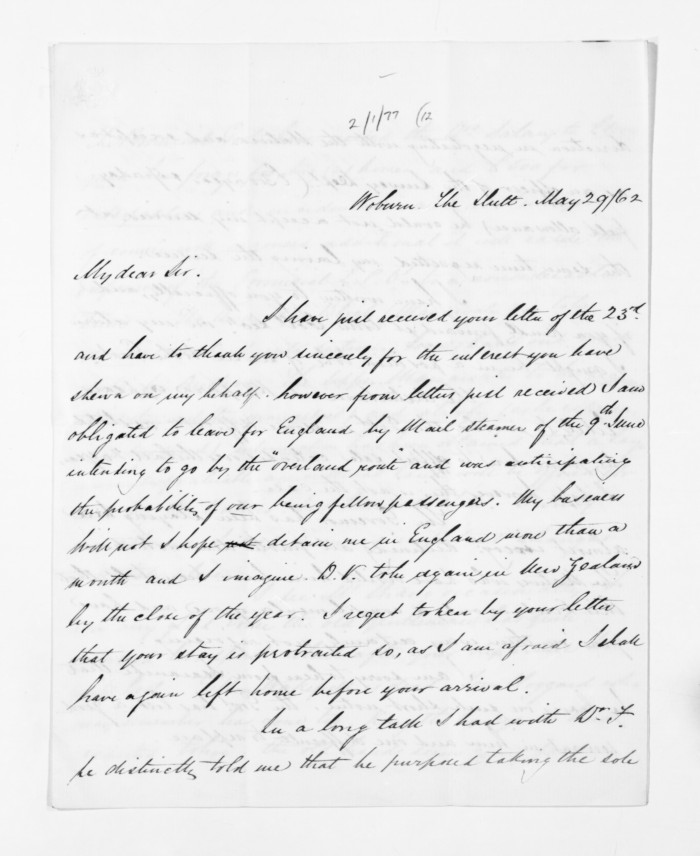 2/1/77 (12
Woburn. The Hutt. May 29/62
My dear Sir.
I have just received your letter of the 23rd.
and have to thank you sincerely for the interest you have
shewn on my behalf. however from letters just received I am
obligated to leave for England by Mail steamer of the 9th June
intending to go by the "overland route" and was anticipating
the probability of our being fellow passengers. My business
will not I hope detain me in England more than a
month and I imagine. D.V. to be again in New Zealand
by the close of the year. I regret to hear by your letter
that your stay is protracted so, as I am afraid I shall
have again left home before your arrival.
In a long talk I had with Dr. F.
he distinctly told me that he purposed taking the sole